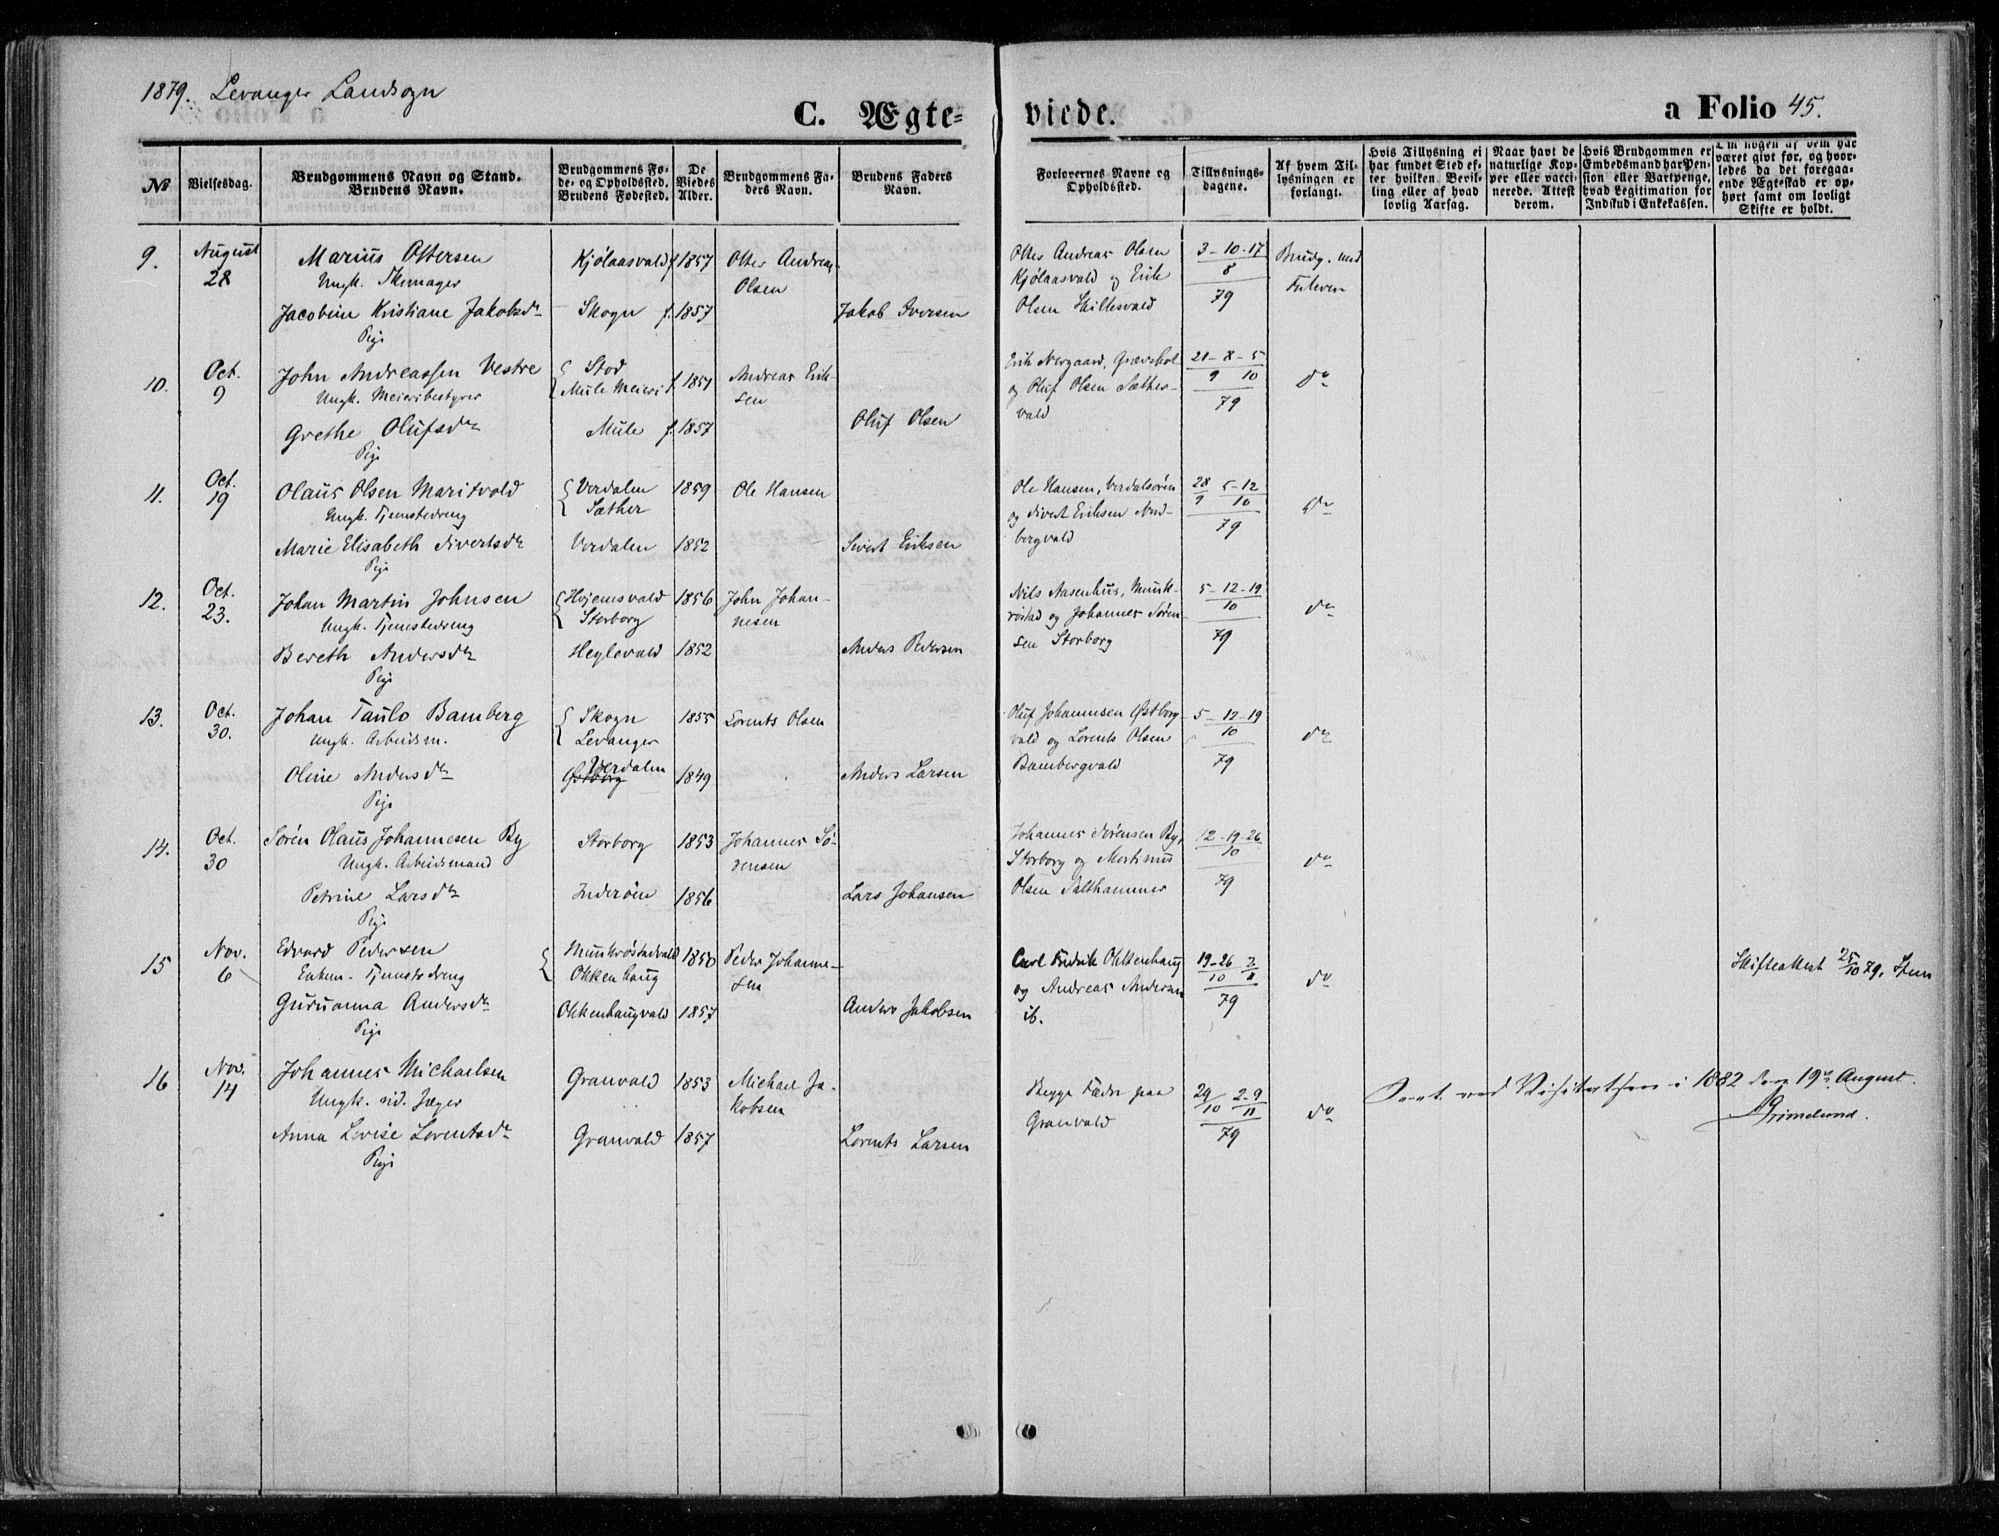 1879. Levanger Landsogn
C. Ægte-
viede.
a Folio 45.
№
Vielsesdag.
Brudgommens Navn og Stand.
Brudens Navn.
Brudgommens Fø-
de- og Opholdssted.
Brudens Fødested.
De
Viedes
Alder.
Brudgommens Fa-
ders Navn.
Brudens Faders
Navn.
Forlovernes Navne og
Opholdssted.
Tillysnings-
dagene.
Af hvem Til-
lysningen er
forlangt.
Hvis Tillysning ei
har fundet Sted ef-
ter hvilken Bevil-
ling eller af hvad
lovlig Aarsag.
Naar havt de
naturlige Kop-
per eller vacci-
nerede. Attest
derom.
Hvis Brudgommen er
Embedsmand har Pen-
sion eller Vartpenge,
hvad Legitimation for
Indskud i Enkekassen.
Om nogen af dem har
været gift før, og hvor-
ledes da det foregaa-
ende Ægteskab er op-
hørt samt om lovligt
Skifte er holdt.
9.
August
28
Marius Ottersen
Ungk. Skomager
Jacobine Kristiane Jakobsdr
Pige
Kjølaasvald
Skogn
f 1857
f. 1857
Otter Andreas
Olsen
Jakob Iversen
Otter Andreas Olsen
Kjølaasvald og Erik
Olsen Hillesvald
3-10-17
8
79
Brudg. med
10.
Oct.
9
John Andreassen Vestre
Ungk. Meieribestyrer
Grethe Olufsdr
Pige
Stod
Mule Meieri
Mule
f. 1851
f. 1857
Andreas Erik-
sen
Oluf Olsen
og Oluf Olsen Sæther-
vald
21-8-5
9 10
79
do
11.
Oct.
19
Olaus Olsen Maritvold
Ungk. Tjenestedreng
Marie Elisabeth Sivertsdr
Pige
Verdalen
Sæther
Verdalen
1859
1852
Ole Hansen
Sivert Eriksen
Ole Hansen, Verdalsøren
og Sivert Eriksen Nord-
bergvald
28 5-12
9 10
79
do
12.
Oct.
23.
Johan Martin Johnsen
Ungk. Tjenestedreng
Bereth Andersdr
Pige
Hojemsvald
Storborg
Heglevald
1856
1852
John Johan-
nesen
Anders Pedersen
Nils Aasenhus, Munk-
røstad og Johannes Søren-
sen Storborg
5-12-19
10
79
do
13.
Oct.
30.
Johan Paulo Bamberg
Ungk. Arbeidsm.
Oline Andersdr
Pige
Skogn
Levanger
Verdalen
Østborg
1855
1849
Lorents Olsen
Anders Larsen
Oluf Johannesen Østborg-
vald og Lorents Olsen
Bambergvald
5-12-19
10
79
do
14.
Oct.
30
Søren Olaus Johannesen By
Ungk. Arbeidsmand
Petrine Larsdr
Pige
Storborg
Inderøen
1853
1856
Johannes Sø-
rensen
Lars Johansen
Johannes Sørensen By,
Storborg og Mortinus
Olsen Salthammer
12-19-26
10
79
do
15
Nov.
6
Edvard Pedersen
Enkem. Tjenestedreng
Guruanna Andersdr
Pige
Munkrøstadvald
Okkenhaug
Okkenhaugvald
1850
1857
Peder Johanne-
sen
Anders Jakobsen
Carl Fredrik Okkenhaug
og Andreas Andersen
ib.
19-26 2
10 11
79
do
Skifteattest 25/10 79,
16
Nov.
14
Johannes Michaelsen
Ungk. rid. Jæger
Anna Lovise Lorentsdr
Pige
Granvald
Granvald
1853
1857
Michael Ja-
kobsen
Lorents Larsen
Begge Fædre paa
Granvald
29 2-9
10 11
79
do
Seet ved Visitatsen i 1882 den 19de August.
Grimelund.